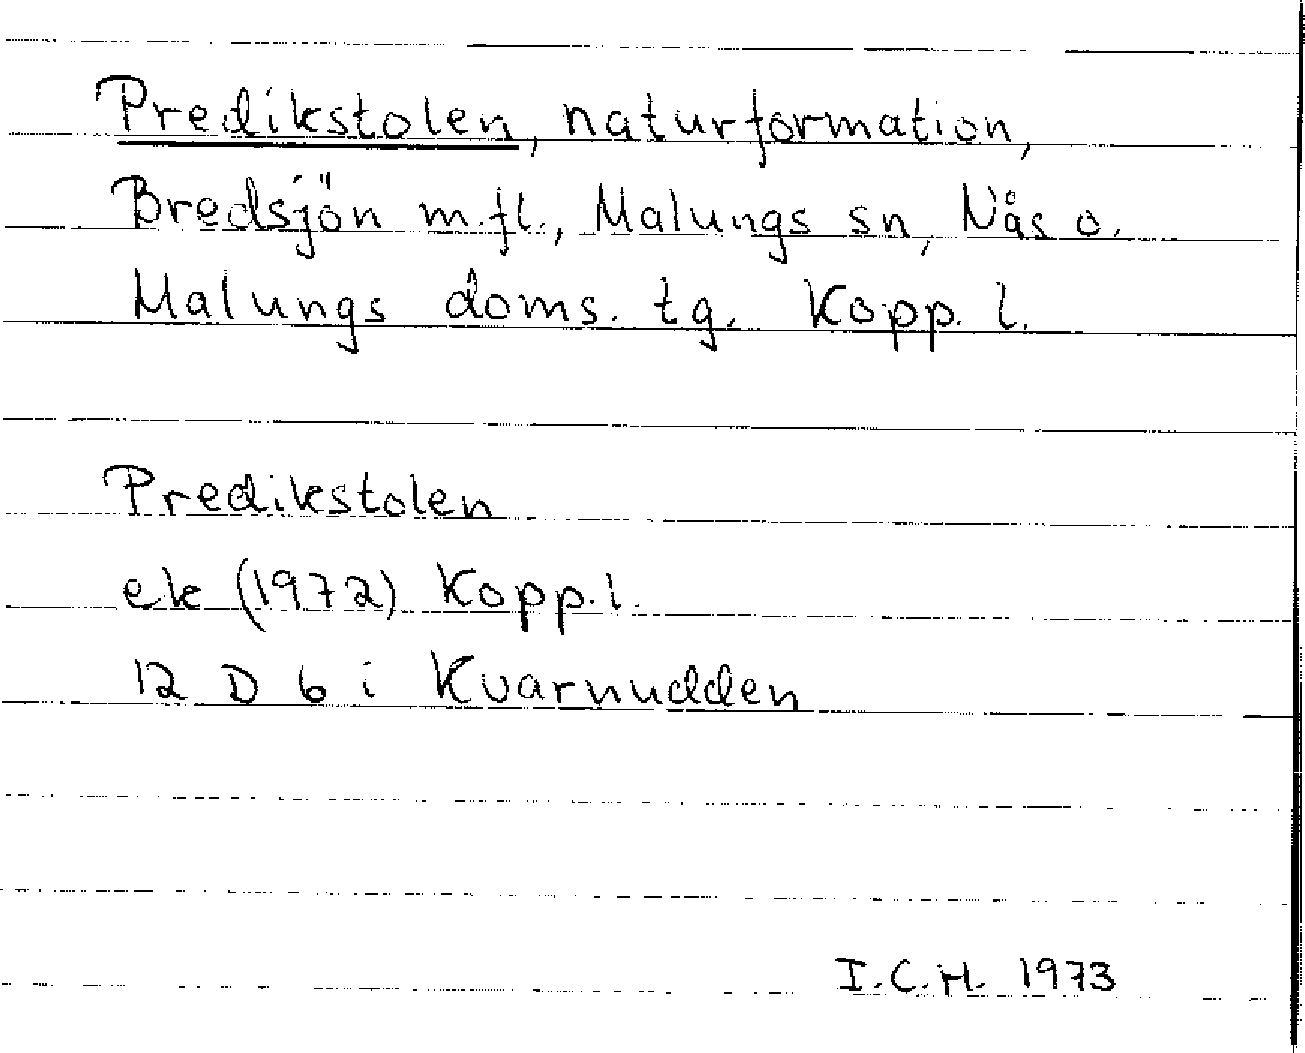 Predikstolen, naturformation,
Bredsjön m.fl., Malungs sn, Nås o.
Malungs doms. tg. Kopp. l.
Predikstolen
ek (1972) Kopp. l.
12 D 6 i Kvarnudden
I.C.H. 1973